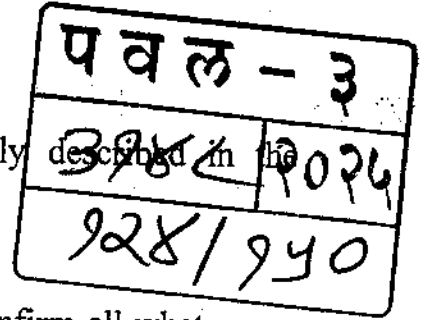 पवल - ३
ly described in the २०२५
१२४/१५०
nfirm all what